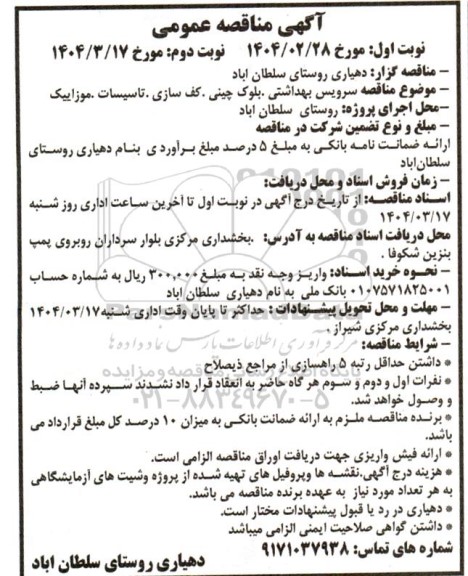 آگهی مناقصه عمومی
نوبت اول: مورخ ۱۴۰۴/۰۲/۲۸ نوبت دوم: مورخ ۱۴۰۴/۳/۱۷
– مناقصه گزار: دهیاری روستای سلطان اباد
– موضوع مناقصه سرویس بهداشتی .بلوک چینی .کف سازی .تاسیسات .موزاییک
–محل اجرای پروژه: روستای سلطان اباد
– مبلغ و نوع تضمین شرکت در مناقصه
ارائه ضمانت نامه بانکی به مبلغ ۵ درصد مبلغ برآورد ی بنام دهیاری روستای
سلطان‌اباد
– زمان فروش اسناد و محل دریافت:
اسناد مناقصه: از تاریخ درج آگهی در نوبت اول تا آخرین ساعت اداری روز شنبه
۱۴۰۴/۰۳/۱۷
محل دریافت اسناد مناقصه به آدرس: .بخشداری مرکزی بلوار سرداران روبروی پمپ
بنزین شکوفا .
– نحوه خرید اسناد: واریز وجه نقد به مبلغ ۳۰۰,۰۰۰ ریال به شماره حساب
۰۱۰۷۵۷۱۸۲۵۰۰۱ بانک ملی به نام دهیاری سلطان اباد
– مهلت و محل تحویل پیشنهادات : حداکثر تا پایان وقت اداری شنبه۱۴۰۴/۰۳/۱۷
بخشداری مرکزی شیراز .
– شرایط مناقصه:
* داشتن حداقل رتبه ۵ راهسازی از مراجع ذیصلاح
* نفرات اول و دوم و سوم هر گاه حاضر به انعقاد قرار داد نشدند سپرده آنها ضبط
و وصول خواهد شد.
* برنده مناقصه ملزم به ارائه ضمانت بانکی به میزان ۱۰ درصد کل مبلغ قرارداد می
باشد.
* ارائه فیش واریزی جهت دریافت اوراق مناقصه الزامی است.
* هزینه درج آگهی.نقشه ها وپروفیل های تهیه شده از پروژه وشیت های آزمایشگاهی
به هر تعداد مورد نیاز به عهده برنده مناقصه می باشد.
* دهیاری در رد یا قبول پیشنهادات مختار است.
* داشتن گواهی صلاحیت ایمنی الزامی میباشد
شماره های تماس: ۹۱۷۱۰۳۷۹۳۸
دهیاری روستای سلطان اباد